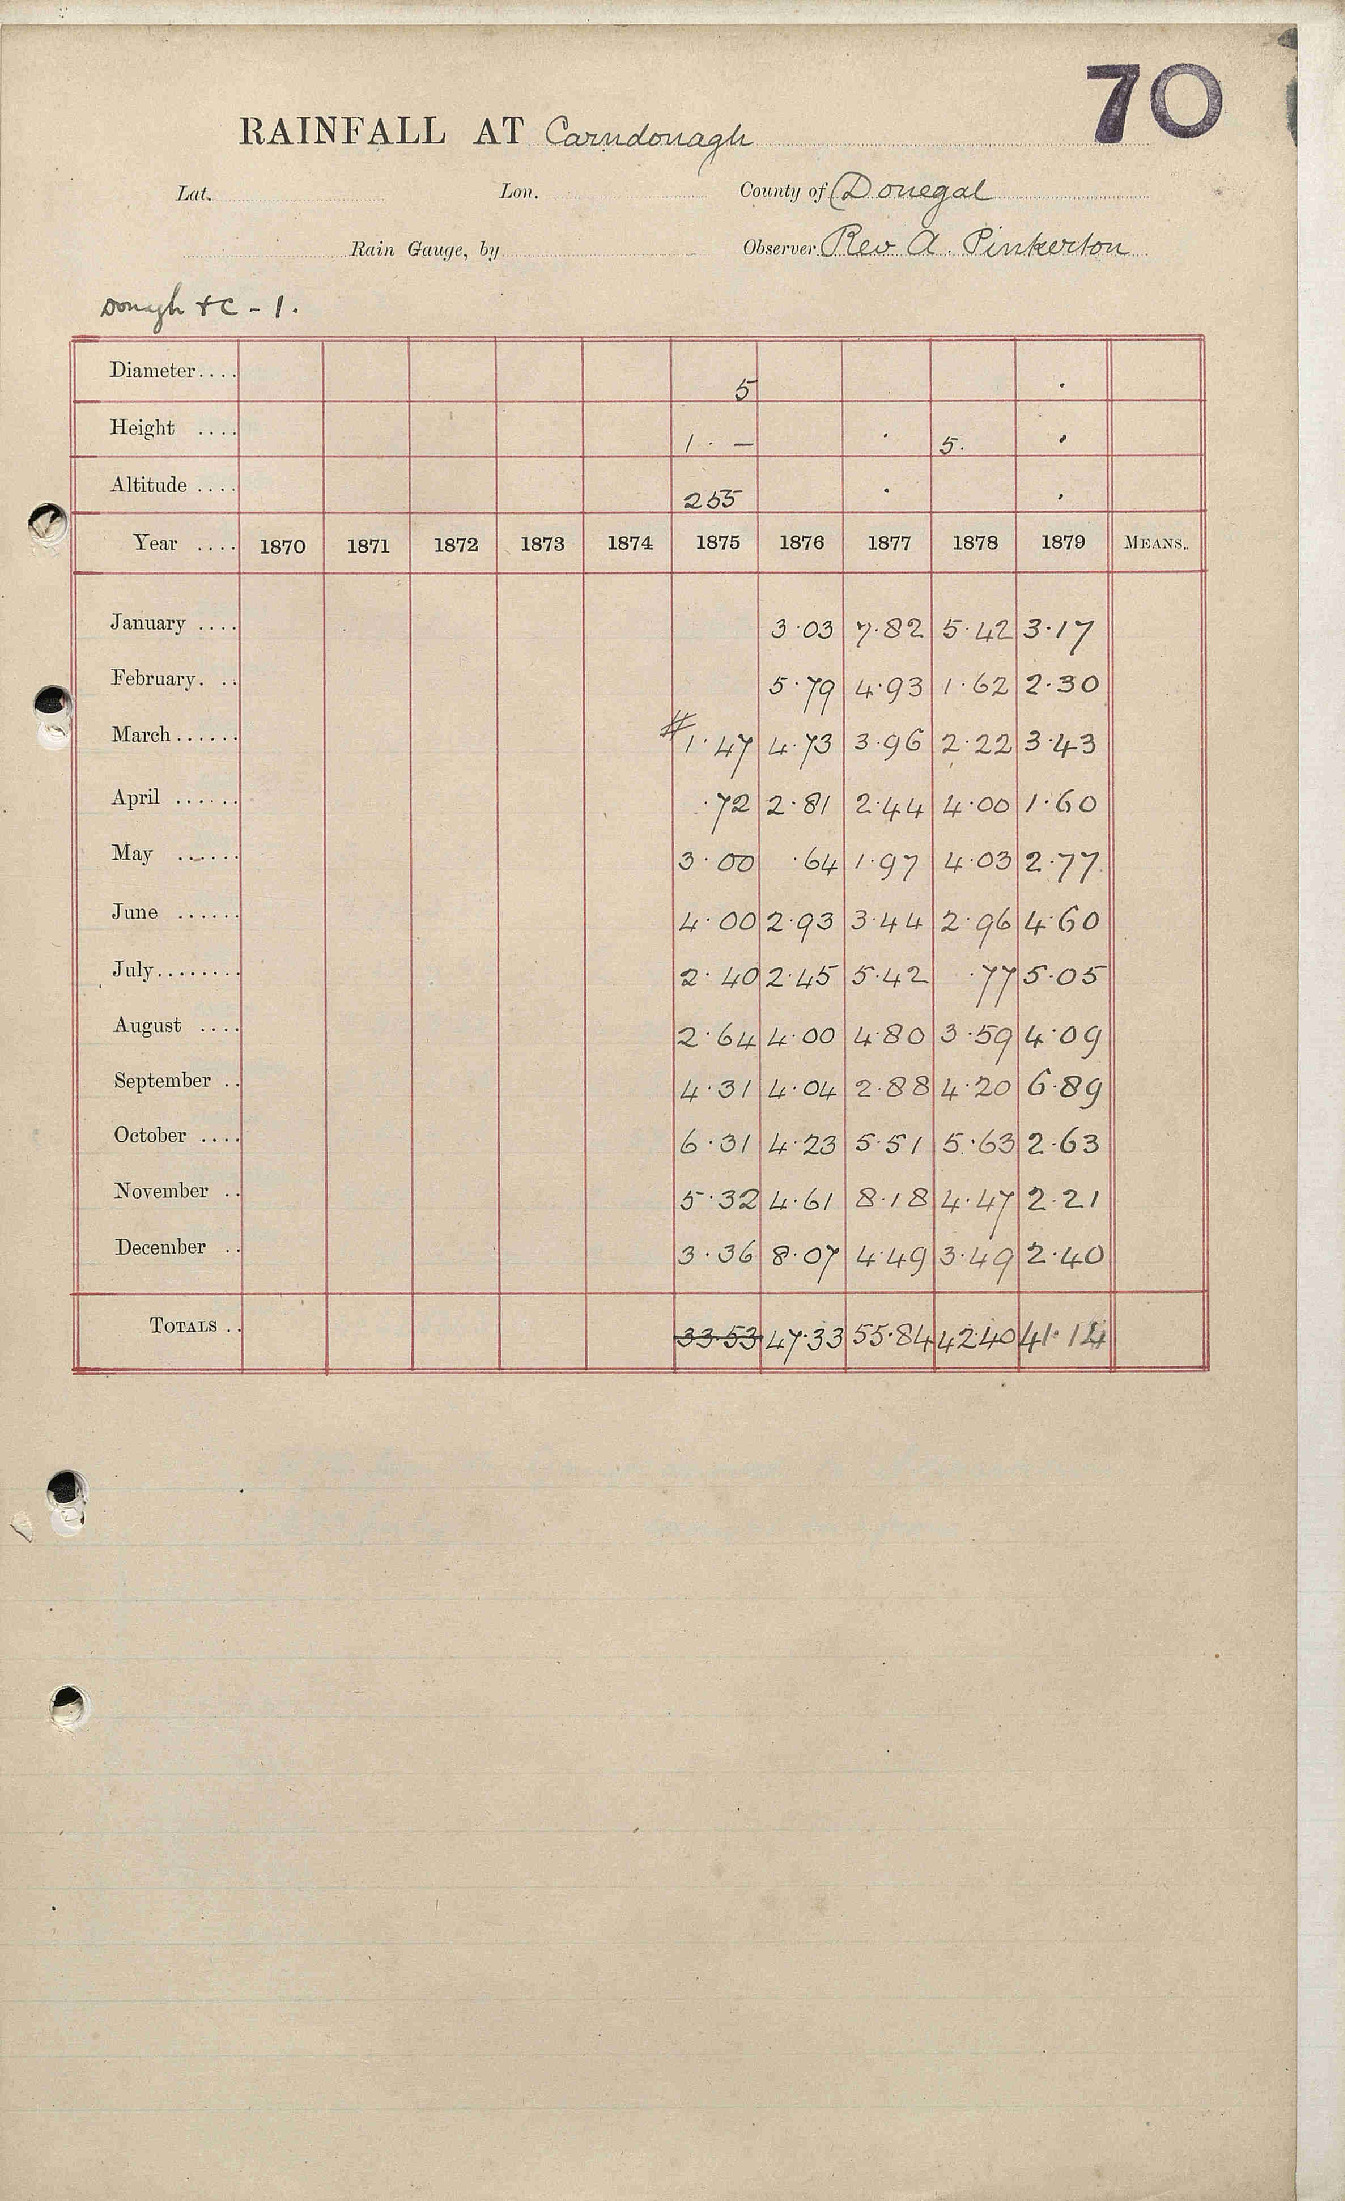 70
RAINFALL AT Carndonagh
Lat. Lon. County of Donegal
Rain Gauge, by Observer Rev A. Pinkerton
+C - 1.
Diameter.... 5 .
Height .... 1 . — . 5. .
Altitude .... 255 . .
Year .... 1870 1871 1872 1873 1874 1875 1876 1877 1878 1879 MEANS..
January .... 3.03 7.82 5.42 3.17
February. .. 5.79 4.93 1.62 2.30
March...... #1.47 4.73 3.96 2.22 3.43
April ...... .72 2.81 2.44 4.00 1.60
May ...... 3.00 .64 1.97 4.03 2.77
June ...... 4.00 2.93 3.44 2.96 4.60
July........ 2.40 2.45 5.42 .77 5.05
August .... 2.64 4.00 4.80 3.59 4.09
September .. 4.31 4.04 2.88 4.20 6.89
October .... 6.31 4.23 5.51 5.63 2.63
November .. 5.32 4.61 8.18 4.47 2.21
December .. 3.36 8.07 4.49 3.49 2.40
TOTALS .. 33.53 47.33 55.84 42.40 41.14